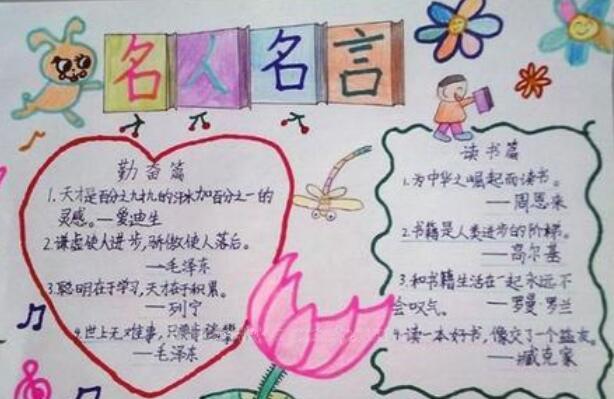 名人名言
勤奋篇
1.天才是百分之九十九的汗水加百分之一的
灵感。—爱迪生
2.谦虚使人进步,骄傲使人落后。
—毛泽东
3.聪明在于学习,天才在于积累。
—列宁
4.世上无难事,只要肯
—毛泽东
读书篇
1.为中华之崛起而读书。
—周恩来
2.书籍是人类进步的阶梯。
—高尔基
3.和书籍生活在一起,永远不
会叹气。—罗曼·罗兰
4.读一本好书,像交了一个益友。
—臧克家